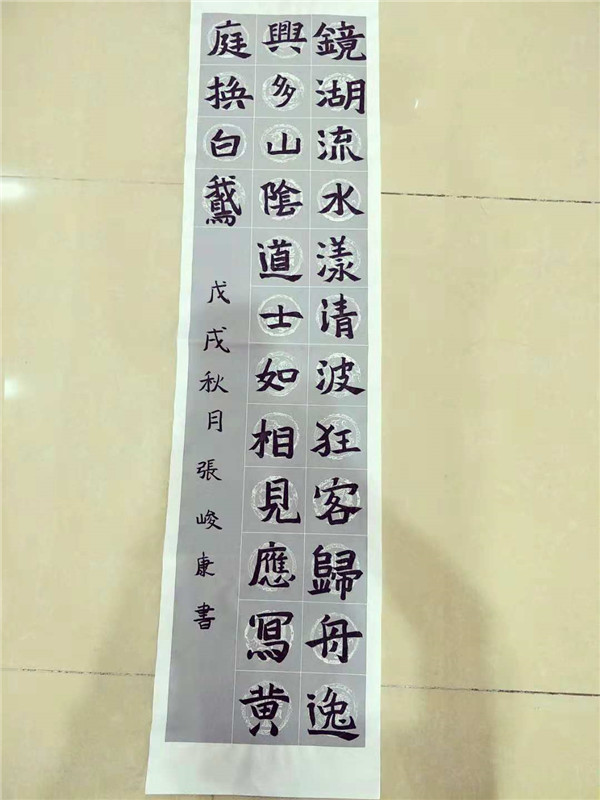 鏡湖流水漾清波狂客歸舟逸
興多山陰道士如相見應寫黄
庭換白鵝
戊戌秋月張峻康書